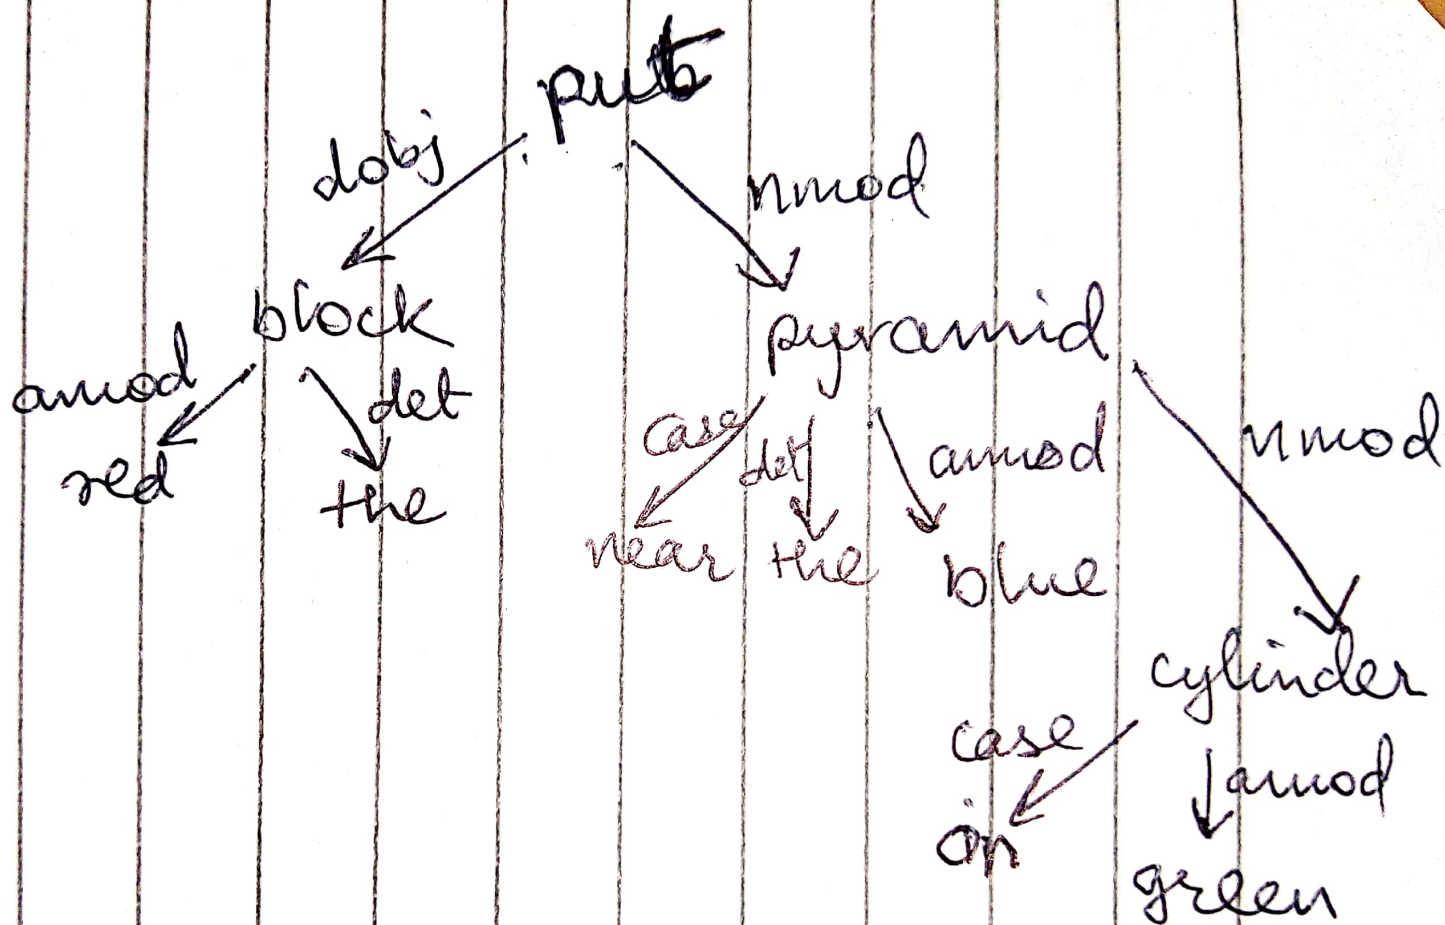 put
dobj
nmod
block
pyramid
amod
det
case
det
amod
nmod
red
the
near
the
blue
cylinder
case
amod
green